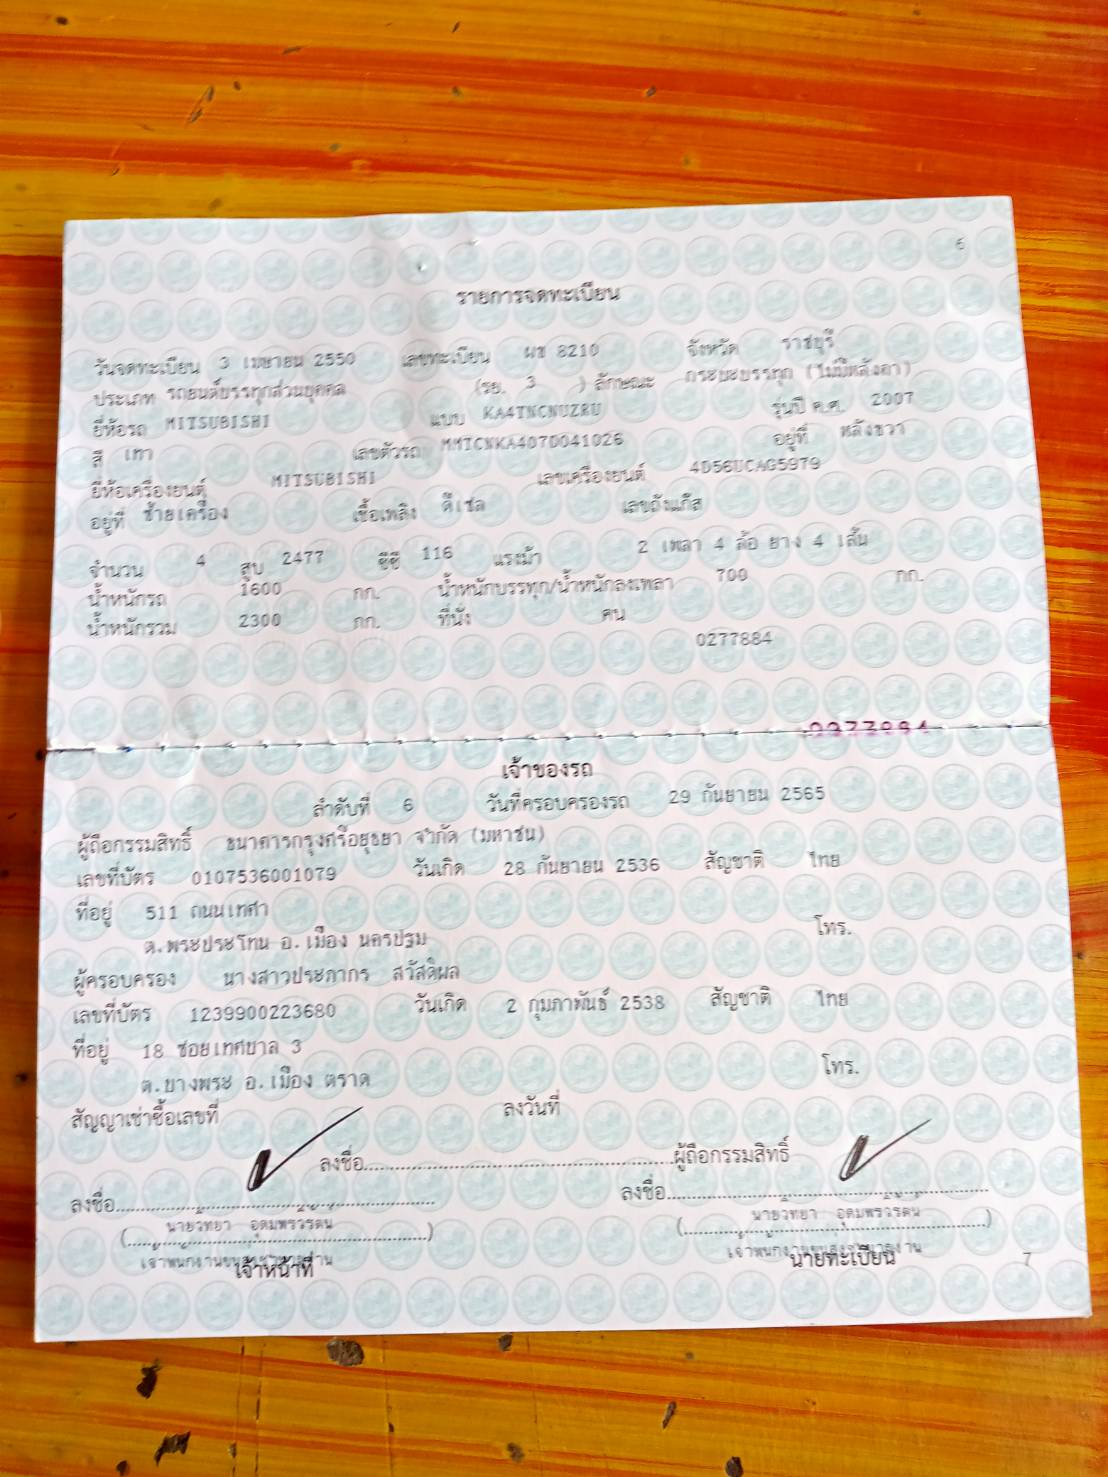 6
รายการจดทะเบียน
วันจดทะเบียน 3 เมษายน 2550 เลขทะเบียน ผข 8210 จังหวัด ราชบุรี
ประเภท รถยนต์บรรทุกส่วนบุคคล (รย. 3 ) ลักษณะ กระบะบรรทุก (ไม่มีหลังคา)
ยี่ห้อรถ MITSUBISHI แบบ KA4TNCNUZRU รุ่นปี ค.ศ. 2007
สี เทา เลขตัวรถ MMTCNKA407D041026 อยู่ที่ หลังขวา
ยี่ห้อเครื่องยนต์ MITSUBISHI เลขเครื่องยนต์ 4D56UCAG5979
อยู่ที่ ซ้ายเครื่อง เชื้อเพลิง ดีเซล เลขถังแก๊ส
จำนวน 4 สูบ 2477 ซีซี 116 แรงม้า 2 เพลา 4 ล้อ ยาง 4 เส้น
น้ำหนักรถ 1600 กก. น้ำหนักบรรทุก/น้ำหนักลงเพลา 700 กก.
น้ำหนักรวม 2300 กก. ที่นั่ง คน
0277884
เจ้าของรถ
ลำดับที่ 6 วันที่ครอบครองรถ 29 กันยายน 2565
ผู้ถือกรรมสิทธิ์ ธนาคารกรุงศรีอยุธยา จำกัด (มหาชน)
เลขที่บัตร 0107536001079 วันเกิด 28 กันยายน 2536 สัญชาติ ไทย
ที่อยู่ 511 ถนนเทศา
ต.พระประโทน อ.เมือง นครปฐม โทร.
ผู้ครอบครอง นางสาวประภากร สวัสดิผล
เลขที่บัตร 1239900223680 วันเกิด 2 กุมภาพันธ์ 2538 สัญชาติ ไทย
ที่อยู่ 18 ซอยเทศบาล 3
ต.บางพระ อ.เมือง ตราด โทร.
สัญญาเช่าซื้อเลขที่ ลงวันที่
ลงชื่อ ผู้ถือกรรมสิทธิ์
ลงชื่อ ลงชื่อ
(นายวิทยา อุดมพรวรัตน์) (นายวิทยา อุดมพรวรัตน์)
เจ้าหน้าที่ นายทะเบียน
7